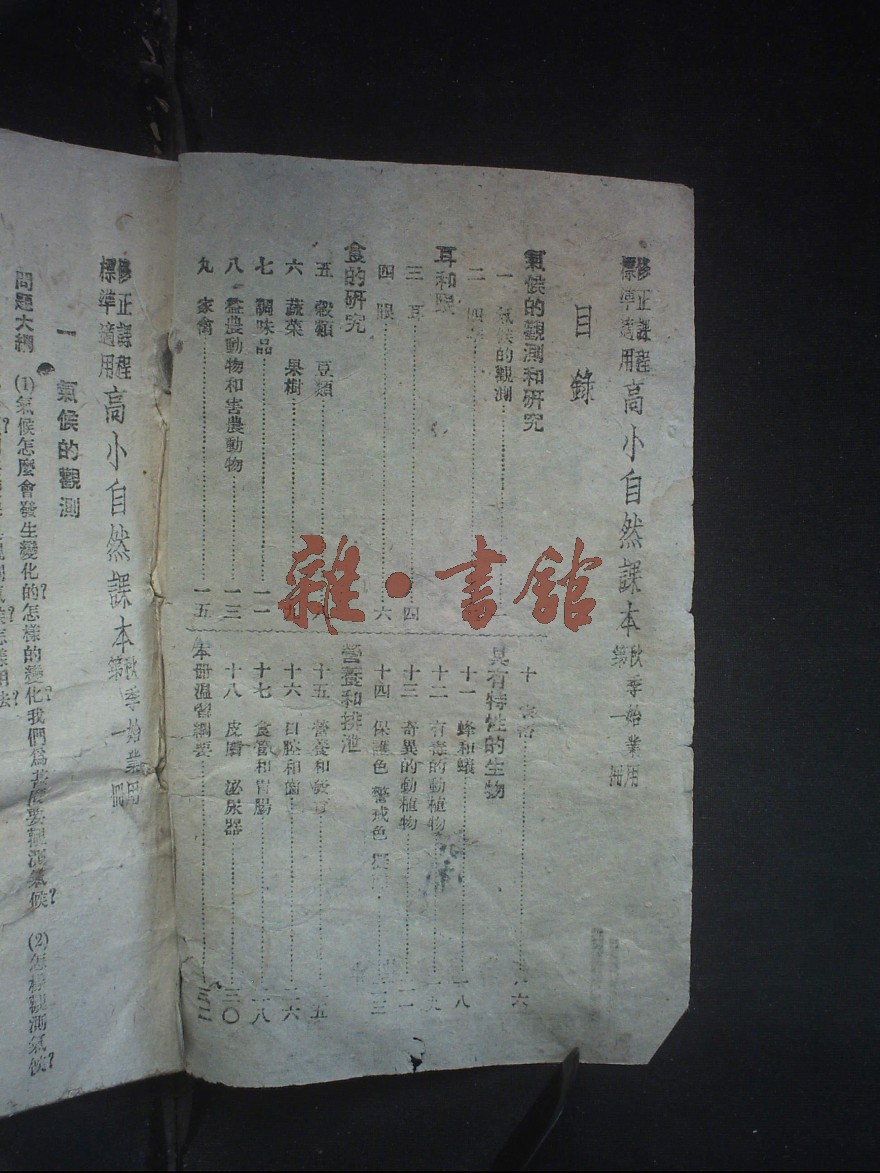 修正課程標準適用 高小自然課本 秋季始業用 第一冊
目錄
氣候的觀測和研究
一 氣候的觀測
二 四季
耳和眼
三 耳 四
四 眼 六
食的研究
五 穀類 豆類
六 蔬菜 果樹 九
七 調味品 一一
八 益農動物和害農動物 一三
九 家禽 一五
十 六
具有特性的生物
十一 蜂和蟻 一八
十二 有毒的動植物 一九
十三 奇異的動植物 二一
十四 保護色 警戒色
營養和排泄
十五 營養和 五
十六 口腔和齒 二六
十七 食管和胃腸 二八
十八 皮膚 泌尿器 三〇
本冊溫習綱要 三二
雜·書館
修正課程標準適用 高小自然課本 秋季始業用 第一冊
一 氣候的觀測
問題大綱 (1)氣候怎麼會發生變化的?怎樣的變化?我們為甚麼要觀測氣候? (2)怎樣觀測氣候?